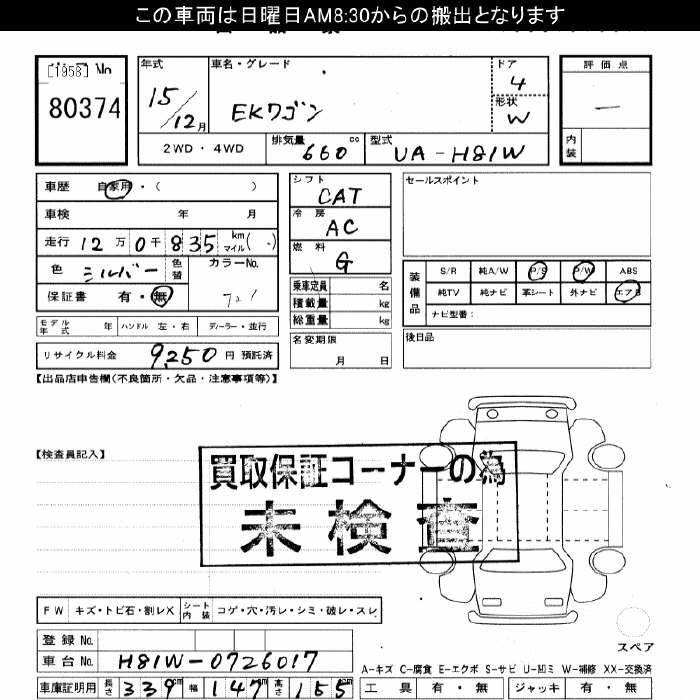 この車両は日曜日AM8:30からの搬出となります
[1958] No
80374
年式 車名・グレード ドア 評価点
15/12月 EKワゴン 4 形状 W ー
2WD・4WD 排気量 660 cc 型式 UA-H81W 内装
車歴 自家用・( )
シフト CAT
セールスポイント
車検 年 月
冷房 AC
走行 12万0千835 km マイル( )
燃料 G
色 シルバー 色替 カラーNo.
保証書 有・無
乗車定員 名
積載量 kg
総重量 kg
装備品 S/R 純A/W P/S P/W ABS
純TV 純ナビ 革シート 外ナビ エアB
ナビ型番:
モデル年式 年 ハンドル 左・右 ディーラー・並行
名変期限 月 日
後日品
リサイクル料金 9,250 円 預託済
【出品店申告欄(不良箇所・欠品・注意事項等)】
【検査員記入】
買取保証コーナーの為
未検査
FW キズ・トビ石・割レX シート内装 コゲ・穴・汚レ・シミ・破レ・スレ
スペア
登録No.
車台No. H81W-0726017
A-キズ C-腐食 E-エクボ S-サビ U-凹ミ W-補修 XX-交換済
車庫証明用 長さ 339cm 幅 147cm 高さ 155cm 工具 有・無 ジャッキ 有・無